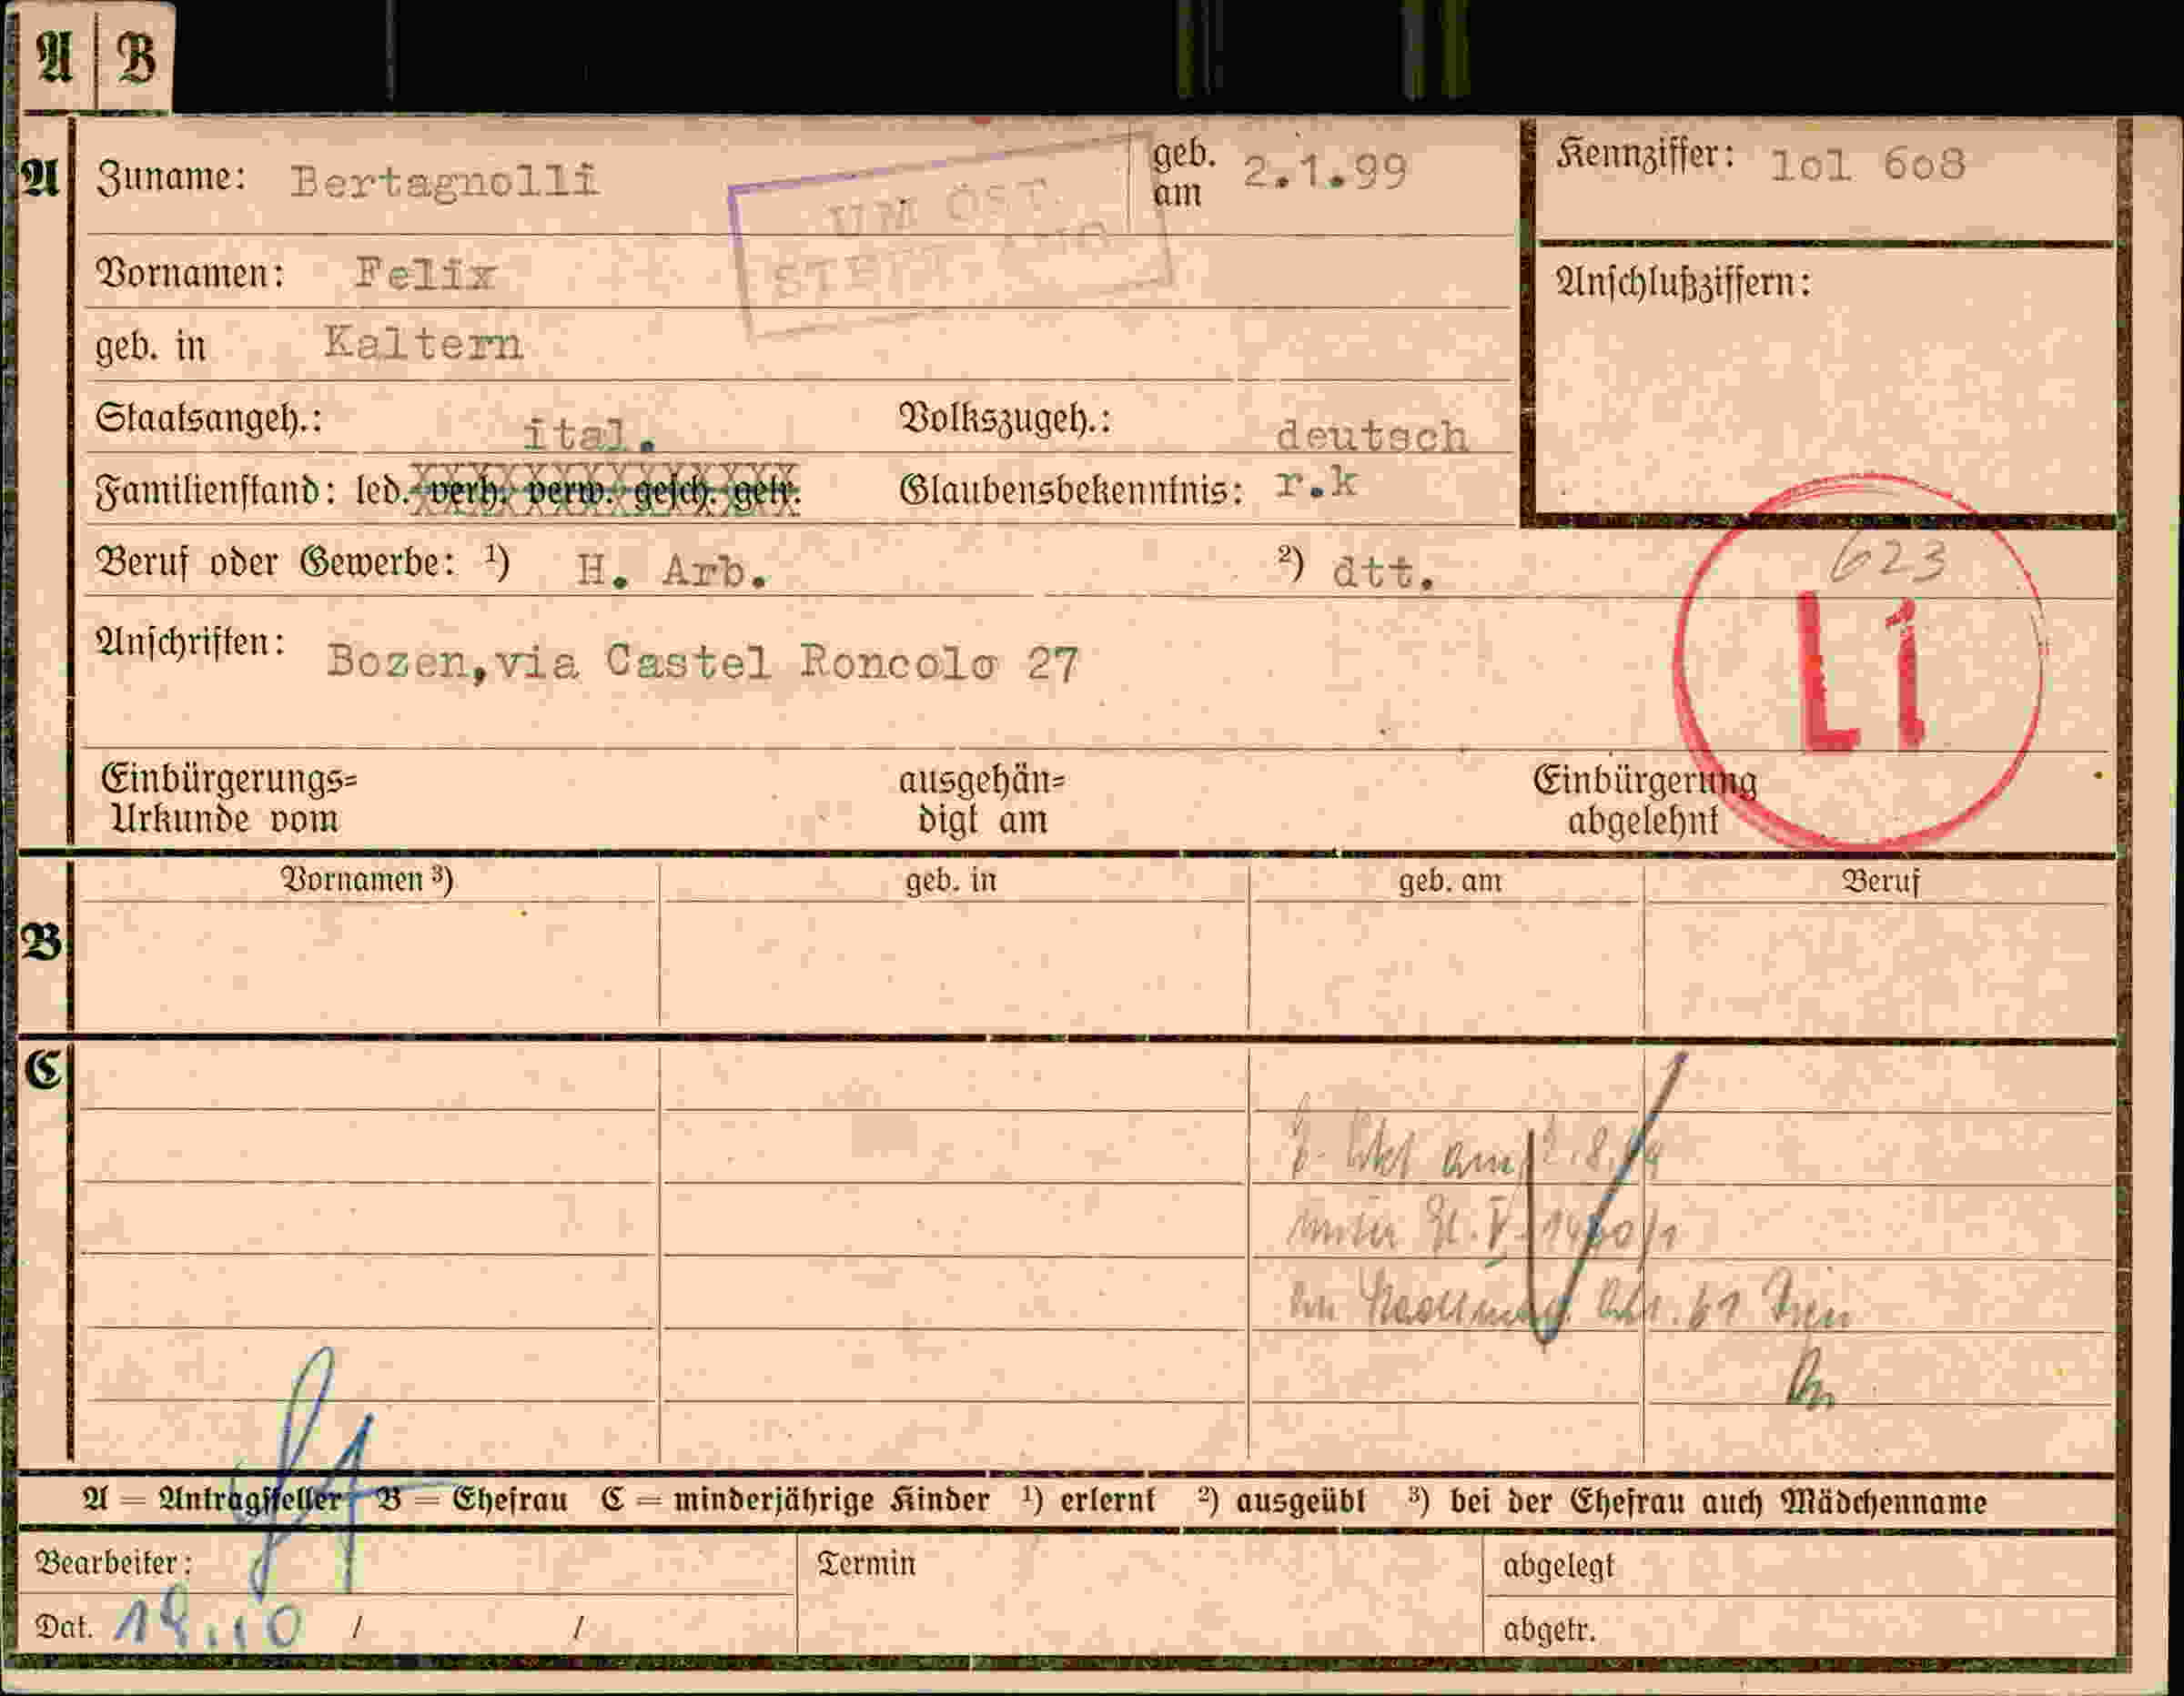 A B
A Zuname: Bertagnolli geb. am 2.1.99 Kennziffer: 1o1 6o8
UM ÖST.
Vornamen: Felix Anschlußziffern:
geb. in Kaltern
Staatsangeh.: ital. Volkszugeh.: deutsch
Familienstand: led. verh. verw. gesch. getr. Glaubensbekenntnis: r.k
Beruf oder Gewerbe: ¹) H. Arb. ²) dtt. 623
L1
Anschriften: Bozen,via Castel Roncolo 27
Einbürgerungs=
Urkunde vom
ausgehän=
digt am
Einbürgerung
abgelehnt
Vornamen ³) geb. in geb. am Beruf
B
C
am 2.8.
61
A = Antragsteller B = Ehefrau C = minderjährige Kinder ¹) erlernt ²) ausgeübt ³) bei der Ehefrau auch Mädchenname
Bearbeiter: Termin abgelegt
Dat. 19.10 / / abgetr.